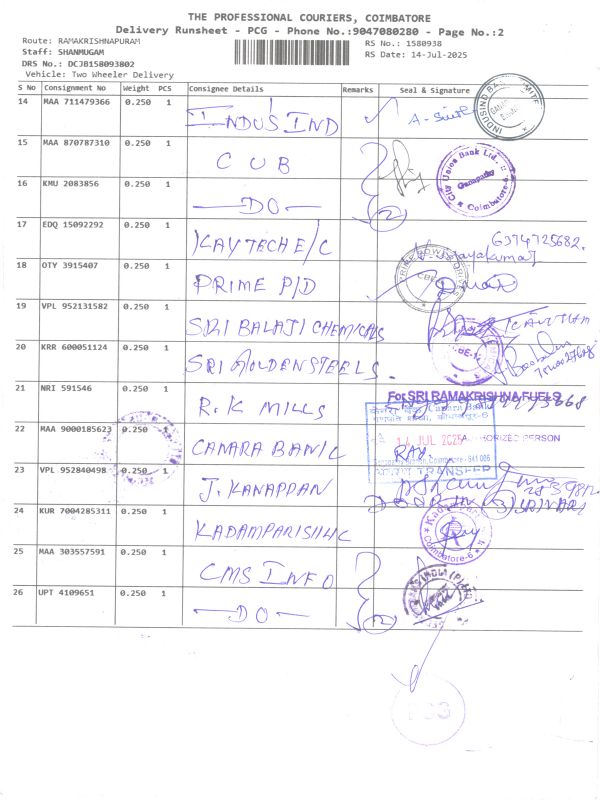 THE PROFESSIONAL COURIERS, COIMBATORE
Delivery Runsheet - PCG - Phone No.:9047080280 - Page No.:2
Route: RAMAKRISHNAPURAM
RS No.: 1580938
Staff: SHANMUGAM
RS Date: 14-Jul-2025
DRS No.: DCJ8158093802
Vehicle: Two Wheeler Delivery
S No Consignment No Weight PCS Consignee Details Remarks Seal & Signature
14 MAA 711479366 0.250 1 INDUSIND
15 MAA 870787310 0.250 1 CUB
City Union Bank Ltd. Ganapathy Coimbatore-6
16 KMU 2083856 0.250 1 —DO— 2
17 EDQ 15092292 0.250 1 KAYTECH E/C 6374725682.
18 OTY 3915407 0.250 1 PRIME P/D
19 VPL 952131582 0.250 1 SRI BALAJI CHEMICALS
20 KRR 600051124 0.250 1 SRI GOLDEN STEELS.
21 NRI 591546 0.250 1 R.K MILLS
For SRI RAMAKRISHNA FUELS
22 MAA 9000185623 0.250 1 CANARA BANK RAY.
14 JUL 2025
TRANSFER
23 VPL 952840498 0.250 1 J. KANAPPAN
24 KUR 7004285311 0.250 1 KADAMPARISHHC
Coimbatore-6
25 MAA 303557591 0.250 1 CMS INFO
26 UPT 4109651 0.250 1 —DO— 2